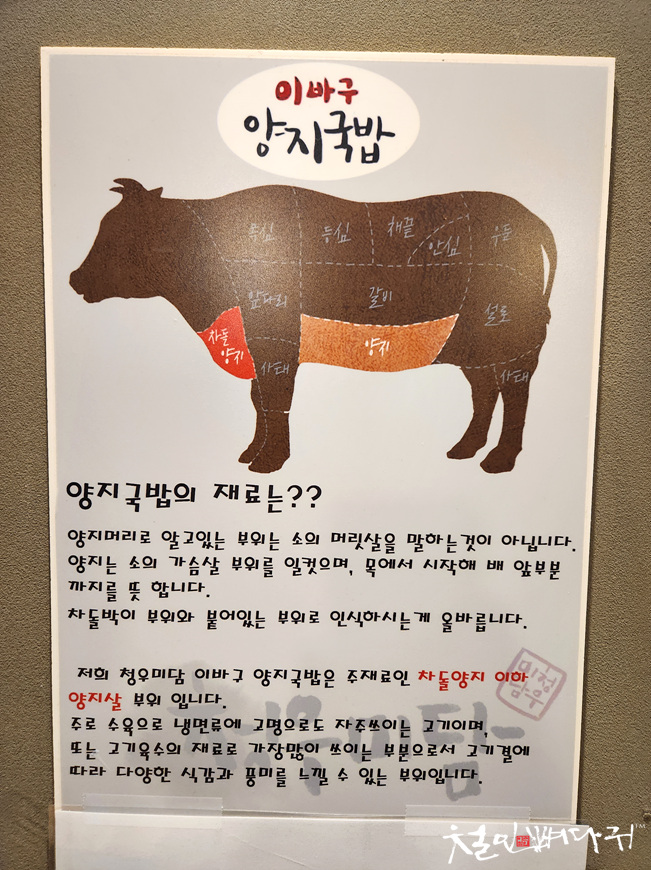 이바구
양지국밥
목심
등심
채끝
안심
우둔
앞다리
갈비
설도
차돌
양지
양지
사태
사태
양지국밥의 재료는??
양지머리로 알고있는 부위는 소의 머릿살을 말하는것이 아닙니다.
양지는 소의 가슴살 부위를 일컷으며, 목에서 시작해 배 앞부분
까지를 뜻 합니다.
차돌박이 부위와 붙어있는 부위로 인식하시는게 올바릅니다.
저희 청우미담 이바구 양지국밥은 주재료인 차돌양지 이하
양지살 부위 입니다.
주로 수육으로 냉면류에 고명으로도 자주쓰이는 고기이며,
또는 고기육수의 재료로 가장많이 쓰이는 부분으로서 고기결에
따라 다양한 식감과 풍미를 느낄 수 있는 부위입니다.
청우미담
철민뼈다귀